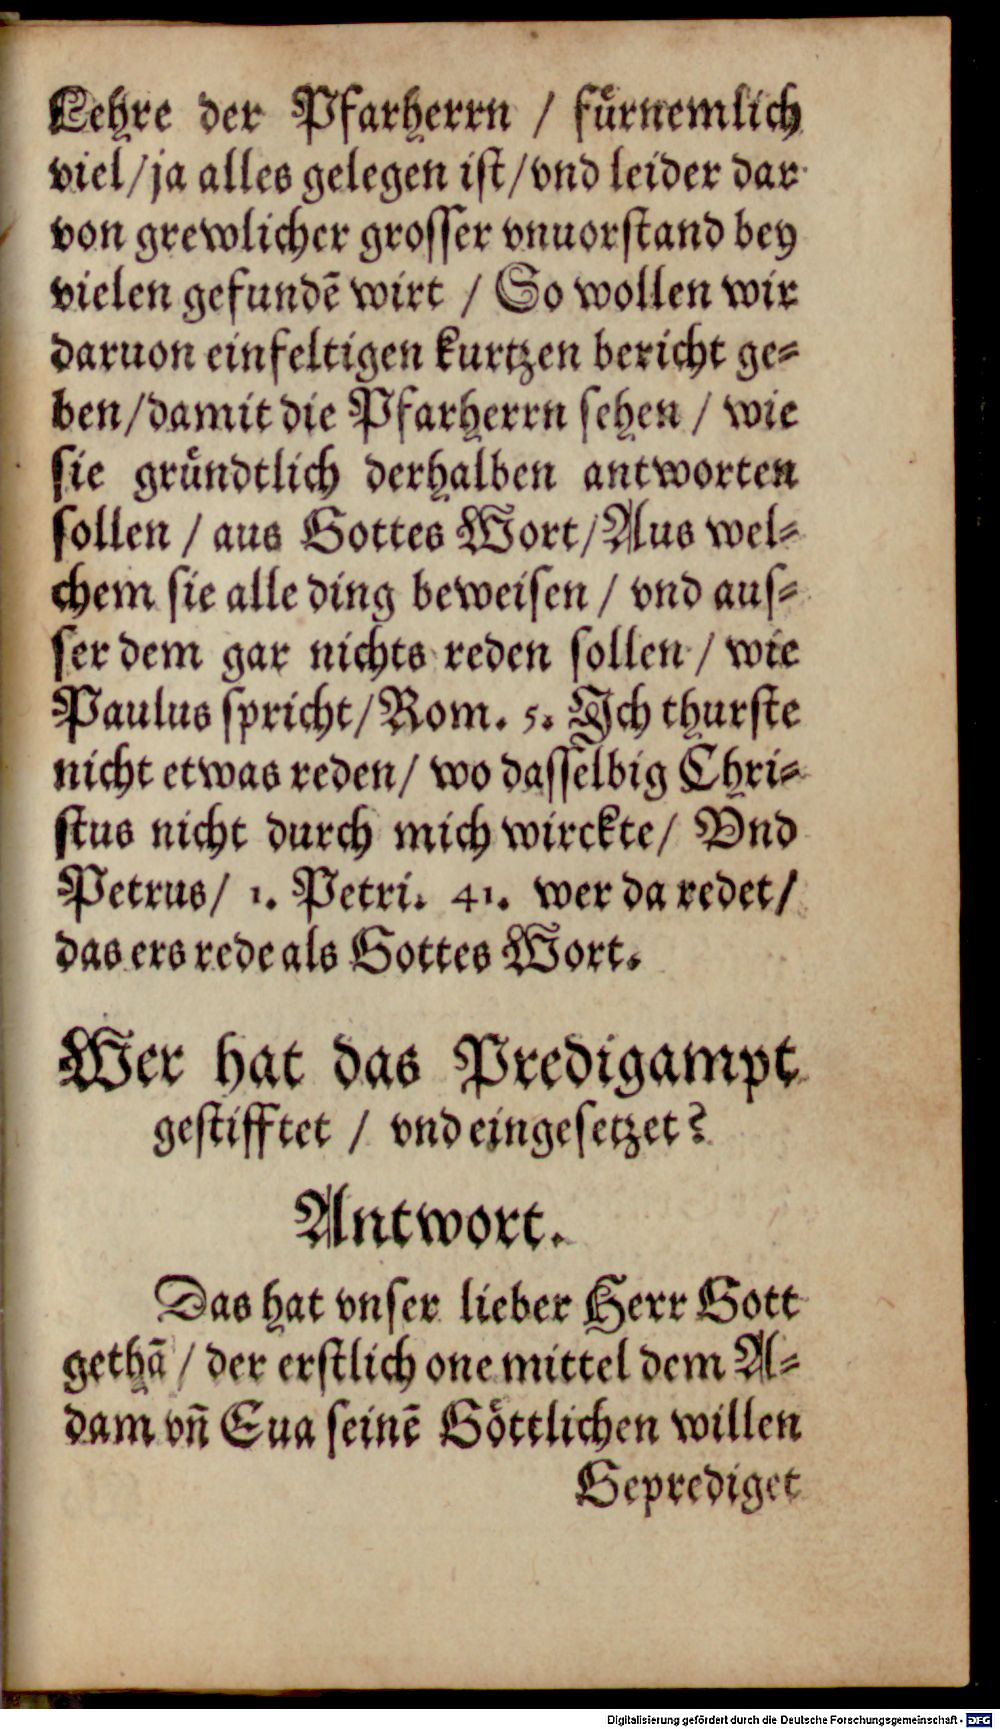 Lehre der Pfarherrn / fuͤrnemlich
viel/ja alles gelegen ist/vnd leider dar
von grewlicher grosser vnuorstand bey
vielen gefundē wirt / So wollen wir
daruon einfeltigen kurtzen bericht ge⸗
ben/damit die Pfarherrn sehen / wie
sie gruͤndtlich derhalben antworten
sollen / aus Gottes Wort/Aus wel⸗
chem sie alle ding beweisen / vnd aus⸗
ser dem gar nichts reden sollen / wie
Paulus spricht/Rom. 5. Ich thurste
nicht etwas reden/ wo dasselbig Chri⸗
stus nicht durch mich wirckte/ Vnd
Petrus/ 1. Petri. 41. wer da redet/
das ers rede als Gottes Wort.
Wer hat das Predigampt
gestifftet / vnd eingesetzet?
Antwort.
Das hat vnser lieber Herr Gott
gethā / der erstlich one mittel dem A⸗
dam vñ Eua seinē Goͤttlichen willen
Geprediget
Digitalisierung gefördert durch die Deutsche Forschungsgemeinschaft - DFG